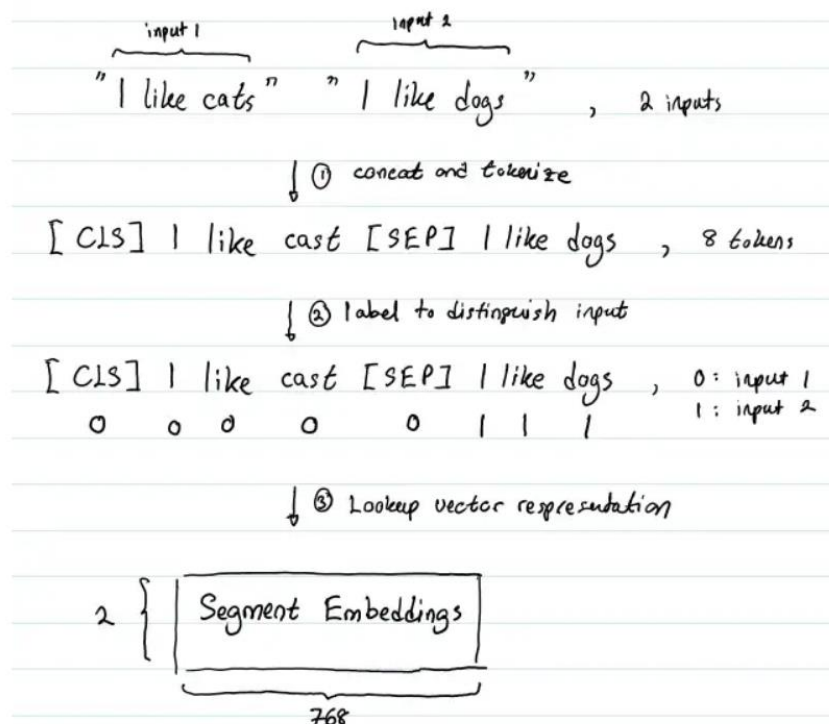 input 1 input 2
"I like cats" "I like dogs" , 2 inputs
① concat and tokenize
[CLS] I like cast [SEP] I like dogs , 8 tokens
② label to distinguish input
[CLS] I like cast [SEP] I like dogs , 0: input 1
0 0 0 0 0 1 1 1 1: input 2
③ Lookup vector respresentation
2 { Segment Embeddings
768